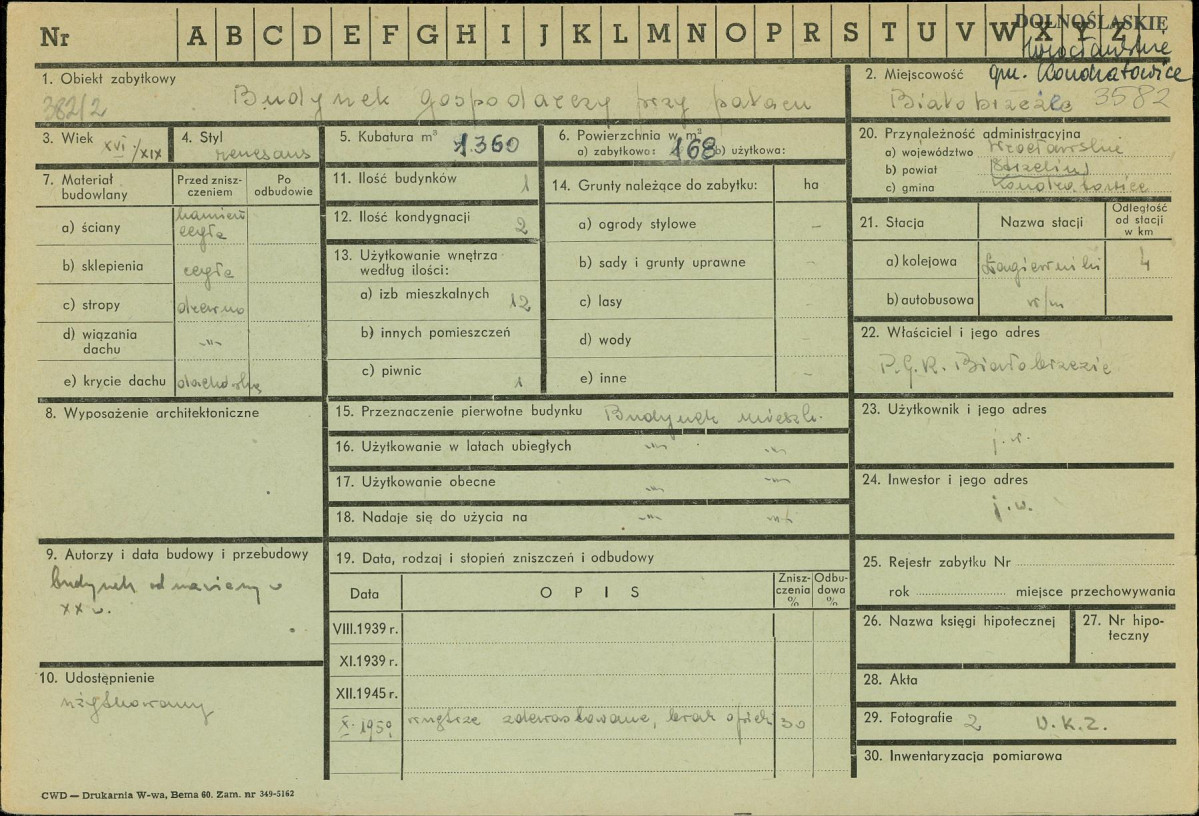 Nr A B C D E F G H I J K L M N O P R S T U V W X Y Z
DOLNOŚLĄSKIE
Wrocławskie
gm. Kondratowice
1. Obiekt zabytkowy
382/2
Budynek gospodarczy przy pałacu
2. Miejscowość
Białobrzezie 3582
3. Wiek XVI/XIX
4. Styl
renesans
5. Kubatura m³ 1.360
6. Powierzchnia w m²
a) zabytkowa: 168 b) użytkowa:
7. Materiał budowlany
Przed zniszczeniem
Po odbudowie
a) ściany kamień cegła
b) sklepienia cegła
c) stropy drewno
d) wiązania dachu -"-
e) krycie dachu dachówka
8. Wyposażenie architektoniczne
9. Autorzy i data budowy i przebudowy
budynek odnawiany w
XX w.
10. Udostępnienie
użytkowany
11. Ilość budynków 1
12. Ilość kondygnacji 2
13. Użytkowanie wnętrza
według ilości:
a) izb mieszkalnych 12
b) innych pomieszczeń
c) piwnic 1
14. Grunty należące do zabytku: ha
a) ogrody stylowe –
b) sady i grunty uprawne –
c) lasy –
d) wody –
e) inne –
15. Przeznaczenie pierwotne budynku Budynek mieszk.
16. Użytkowanie w latach ubiegłych -"- -"-
17. Użytkowanie obecne -"- -"-
18. Nadaje się do użycia na -"- -"-
19. Data, rodzaj i stopień zniszczeń i odbudowy
Data OPIS Zniszczenia % Odbudowa %
VIII.1939 r.
XI.1939 r.
XII.1945 r.
X. 1959 wnętrze zdewastowane, brak opieki 30
20. Przynależność administracyjna
a) województwo wrocławskie
b) powiat Strzelin
c) gmina Kondratowice
21. Stacja Nazwa stacji Odległość od stacji w km
a) kolejowa Łagiewniki 4
b) autobusowa w/m
22. Właściciel i jego adres
P.G.R. Białobrzezie
23. Użytkownik i jego adres
j.w.
24. Inwestor i jego adres
j.w.
25. Rejestr zabytku Nr
rok miejsce przechowywania
26. Nazwa księgi hipotecznej
27. Nr hipoteczny
28. Akta
29. Fotografie 2 W.K.Z.
30. Inwentaryzacja pomiarowa
CWD — Drukarnia W-wa, Bema 60. Zam. nr 349-5162